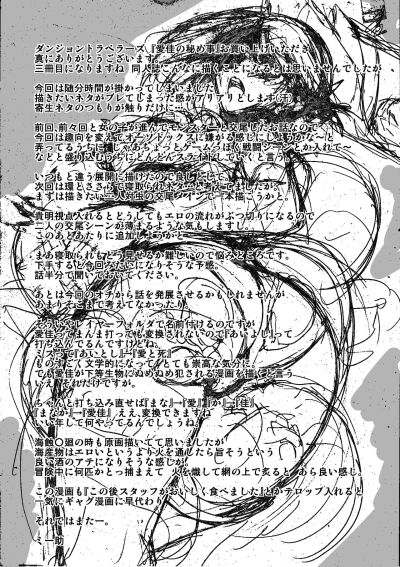 ダンジョントラベラーズ、『愛佳の秘め事』お買い上げいただき
真にありがとうございます。
三冊目になりますね 同人誌こんなに描くことになるとは思いませんでしたが
今回は随分時間が掛かってしまいました
描きたいネタがブレてしまった感がアリアリとします(汗)
寄生ネタのつもりが触りだけに…
前回、前々回と女の子が進んでモンスターと交尾したお話なので
今回は趣向を変えてオーソドックスに嫌がる感じにしようかな~と
弄ってるうちに
などと盛り込むうちにどんどんスライドしていくと言う。
いつもと違う展開に描けたので良しとして、
次回は環とささらで寝取られドラーと考えてましたが、
まずは描きたい二人対虫の交尾メインで一本描こうかと。
貴明視点入れるとどうしてもエロの流れがぶつ切りになるので
二人の交尾シーンが薄まるような気もしますし。
このあとあたりに追加しようかと
まあ寝取られもどう見せるか難しいので悩みどころです。
下手すると今回みたいになりそうな予感。
話半分で聞いておいてください。
あとは今回のオチから話を発展させるかもしれませんが
あまりそこまで考えてなかったり
そういやレイヤーフォルダで名前付けるのですが
愛佳ってまんま打っても変換されないので『あいよし』って
打ち込んでるんですけどね、
ミスって『あいとし』→『愛と死』
ものすごく文学的になってとても崇高な気分に。
でも愛佳が下等生物にぬめぬめ犯される漫画を描くと言う
いえ、それだけですが。
ちゃんと打ち込み直せば『まな』→『愛』『か』→『佳』
『まなか』→『愛佳』ええ、変換できますね
いい年して何やってるんでしょうね。
海蝕〇廻の時も原画描いてて思いましたが
海産物はエロいというより火を通したら旨そうという
良い酒のアテになりそうな感じが。
冒険中に何匹かとっ捕まえて 火を熾して網の上で炙ると、あら良い感じ。
この漫画も『この後スタッフがおいしく食べました』とかテロップ入れると
一気にギャグ漫画に早代わり
それではまたー。
ミ一助